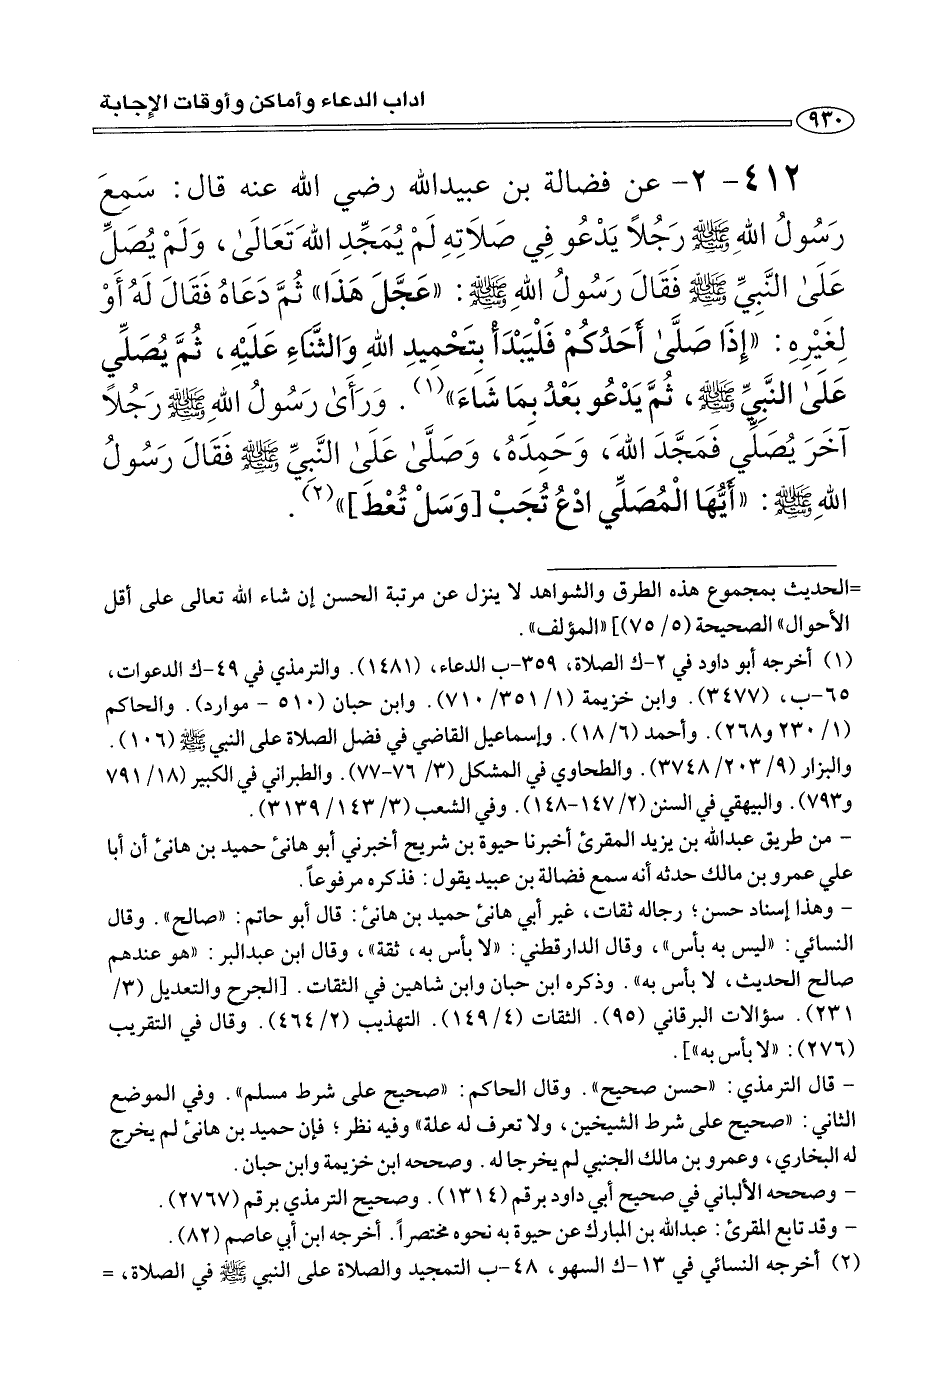 اداب الدعاء وأماكن وأوقات الإجابة
٩٣٠
٤١٢- ٢- عن فضالة بن عبيدالله رضي الله عنه قال: سَمِعَ
رَسُولُ اللهِ ﷺ رَجُلاً يَدْعُو فِي صَلاَتِهِ لَمْ يُمَجِّدِ اللهَ تَعَالَىٰ، وَلَمْ يُصَلِّ
عَلَىٰ النَّبِيِّ ﷺ فَقَالَ رَسُولُ اللهِ ﷺ: «عَجَّلَ هَذَا» ثُمَّ دَعَاهُ فَقَالَ لَهُ أَوْ
لِغَيْرِهِ: «إِذَا صَلَّىٰ أَحَدُكُمْ فَلْيَبْدَأْ بِتَحْمِيدِ اللهِ وَالثَّنَاءِ عَلَيْهِ، ثُمَّ يُصَلِّي
عَلَىٰ النَّبِيِّ ﷺ، ثُمَّ يَدْعُو بَعْدُ بِمَا شَاءَ»(١). وَرَأَىٰ رَسُولُ اللهِ ﷺ رَجُلاً
آخَرَ يُصَلِّي فَمَجَّدَ اللهَ، وَحَمِدَهُ، وَصَلَّىٰ عَلَىٰ النَّبِيِّ ﷺ فَقَالَ رَسُولُ
اللهِ ﷺ: «أَيُّهَا الْمُصَلِّي ادْعُ تُجَبْ [وَسَلْ تُعْطَ]»(٢).
=الحديث بمجموع هذه الطرق والشواهد لا ينزل عن مرتبة الحسن إن شاء الله تعالى على أقل
الأحوال» الصحيحة (٥/ ٧٥)] «المؤلف».
(١) أخرجه أبو داود في ٢-ك الصلاة، ٣٥٩-ب الدعاء، (١٤٨١). والترمذي في ٤٩-ك الدعوات،
٦٥-ب، (٣٤٧٧). وابن خزيمة (١/ ٣٥١/ ٧١٠). وابن حبان (٥١٠ - موارد). والحاكم
(١/ ٢٣٠ و٢٦٨). وأحمد (٦/ ١٨). وإسماعيل القاضي في فضل الصلاة على النبي ﷺ (١٠٦).
والبزار (٩/ ٢٠٣/ ٣٧٤٨). والطحاوي في المشكل (٣/ ٧٦-٧٧). والطبراني في الكبير (١٨/ ٧٩١
و٧٩٣). والبيهقي في السنن (٢/ ١٤٧-١٤٨). وفي الشعب (٣/ ١٤٣/ ٣١٣٩).
- من طريق عبدالله بن يزيد المقرئ أخبرنا حيوة بن شريح أخبرني أبو هانئ حميد بن هانئ أن أبا
علي عمرو بن مالك حدثه أنه سمع فضالة بن عبيد يقول: فذكره مرفوعاً.
- وهذا إسناد حسن؛ رجاله ثقات، غير أبي هانئ حميد بن هانئ: قال أبو حاتم: «صالح». وقال
النسائي: «ليس به بأس»، وقال الدارقطني: «لا بأس به، ثقة»، وقال ابن عبدالبر: «هو عندهم
صالح الحديث، لا بأس به». وذكره ابن حبان وابن شاهين في الثقات. [الجرح والتعديل (٣/
٢٣١). سؤالات البرقاني (٩٥). الثقات (٤/ ١٤٩). التهذيب (٢/ ٤٦٤). وقال في التقريب
(٢٧٦): «لا بأس به»].
- قال الترمذي: «حسن صحيح». وقال الحاكم: «صحيح على شرط مسلم». وفي الموضع
الثاني: «صحيح على شرط الشيخين، ولا تعرف له علة» وفيه نظر؛ فإن حميد بن هانئ لم يخرج
له البخاري، وعمرو بن مالك الجنبي لم يخرجا له. وصححه ابن خزيمة وابن حبان.
- وصححه الألباني في صحيح أبي داود برقم (١٣١٤). وصحيح الترمذي برقم (٢٧٦٧).
- وقد تابع المقرئ: عبدالله بن المبارك عن حيوة به نحوه مختصراً. أخرجه ابن أبي عاصم (٨٢).
(٢) أخرجه النسائي في ١٣-ك السهو، ٤٨-ب التمجيد والصلاة على النبي ﷺ في الصلاة، =